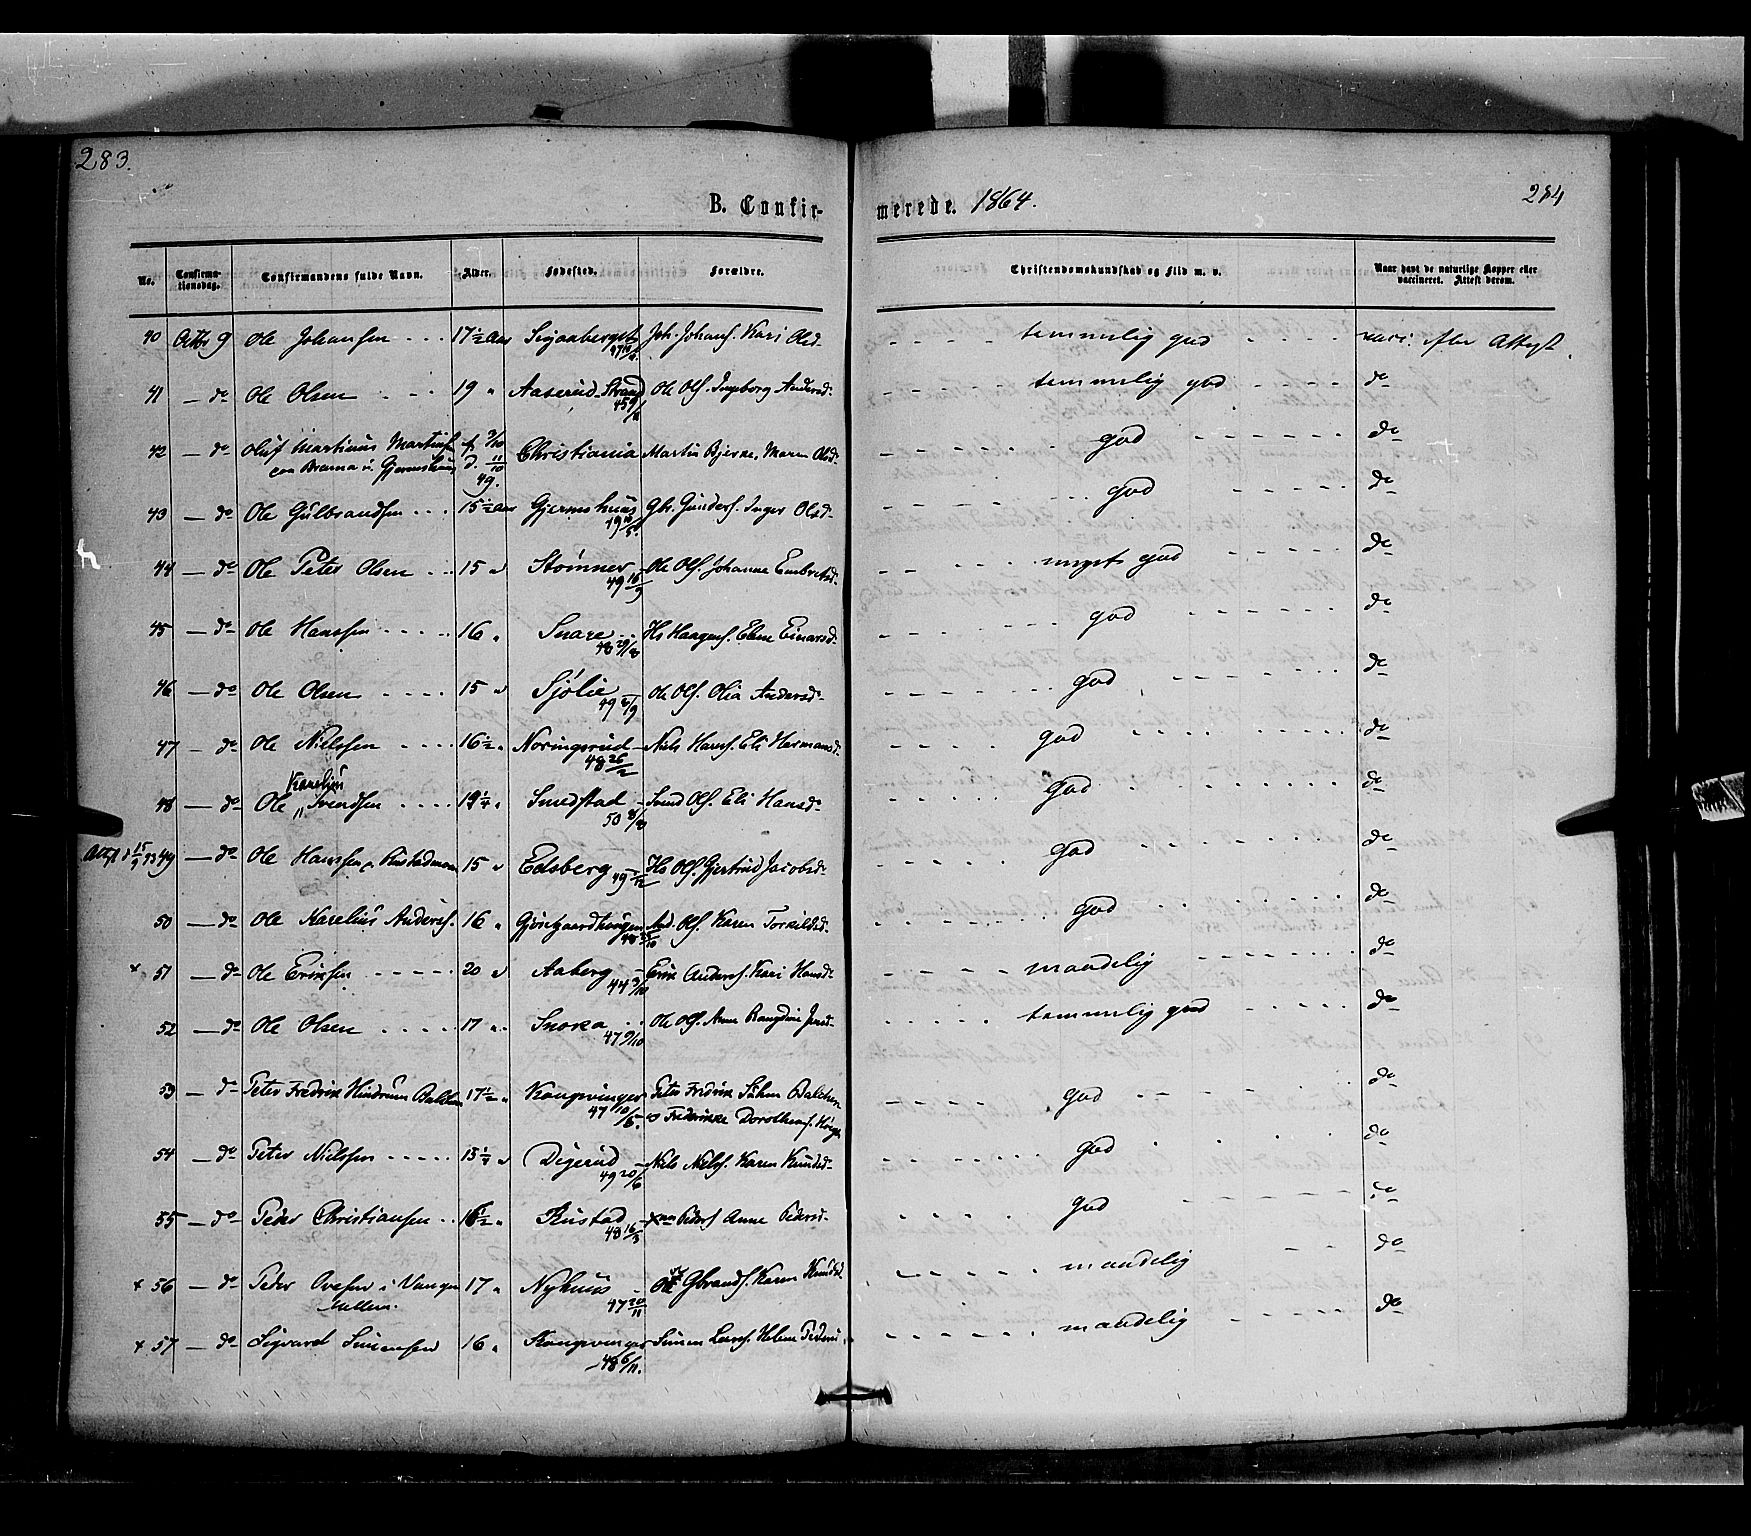 283.
284
B. Confirmerede. 1864.
No. Confirmationsdag. Confirmandens fulde Navn. Alder. Fødested. Forældre. Christendomskundskab og Flid m. v. Naar havt de naturlige Kopper eller vaccineret. Attest derom.
40 Octbr 9 Ole Johansen 17½ Aar Joh. Johans. Kari Olsd. temmelig god vacc. efter Attest.
41 — do Ole Olsen 19 " Aaserud Strand 45 Ole Ols. Ingeborg Andersd. temmelig god do
42 — do Oluf Martinus Martins. f. 3/10 d. 11/10 49. Christiania Martin Bjerke, Maren Olsd. god do
43 — do Ole Gulbrandsen 15½ Aar Gjermshuus 49 Gbr. Gunders. Inger Olsd. god do
44 — do Ole Peter Olsen 15 " Stømner 49 16/9 Ole Ols. Johanne Embretsd. meget god do
45 — do Ole Hanssen 16 " Snare 48 29/8 Hs Haagens. Elene Einarsd. god do
46 — do Ole Olsen 15 " Sjølie 49 /9 Ole Ols. Olia Andersd. god do
47 — do Ole Nielssen 16½ " Noringsrud 48 26/2 Niels Hans. Eli Hermansd. god do
48 — do Ole Karelius Svendsen " Smedstad 50 8/8 Svend Ols. Eli Hansd. god do
Attest d 15/9 93 49 — do Ole Hanssen 15 " Edsberg 49 /12 Hs Ols. Gjertrud Jacobsd. god do
50 — do Ole Karelius Anders. 16 " 48 /10 And. Ols. Karen Torkildsd. god do
x 51 — do Ole Eriksen 20 " Aaberg 44 3/10 Erik Anders. Kari Hansd. maadelig do
52 — do Ole Olsen 17 " Snora 47 9/10 Ole Ols. Anne Jensd. temmelig god do
53 — do Peter Fredrik Hindrum Balchen 17½ " Kongsvinger 47 10/6. Peter Fredrik Balchen
og Frederikke Dorothea god do
54 — do Peter Nielssen 15¼ " Digerud 49 20/6 Niels Niels. Karen Knudsd. god do
55 — do Peder Christiansen 16½ " Rustad 48 16/3 Xtian Peders. Anne Pedersd. god do
x 56 — do Peder Ovesen i Vangen
Mellem. 17 " Nyhuus 47 20/11 Gbrands. Karen Knudsd. maadelig do
x 57 — do Sigvart Simensen 16 " Kongsvinger 48 6/11. Simen Lars. Helene maadelig do